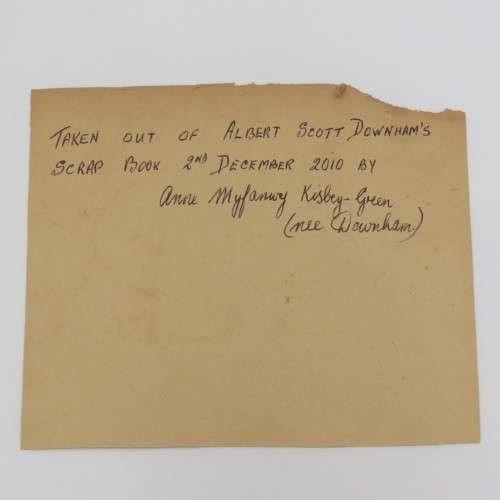 TAKEN OUT OF ALBERT SCOTT DOWNHAM'S
SCRAP BOOK 2ND DECEMBER 2010 BY
Anne Myfanwy Kisbey-Green
(nee Downham.)